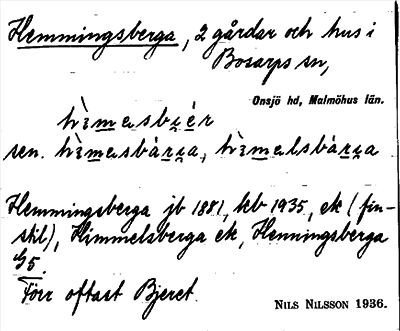 Hemmingsberga, 2 gårdar och hus i
Bosarps sn,
Onsjö hd, Malmöhus län.
sen.
Hemmingsberga jb 1881, kb 1935, ek (fin-
stil), Himmelsberga ek, Henningsberga
G5.
Förr oftast Bjeret.
NILS NILSSON 1936.